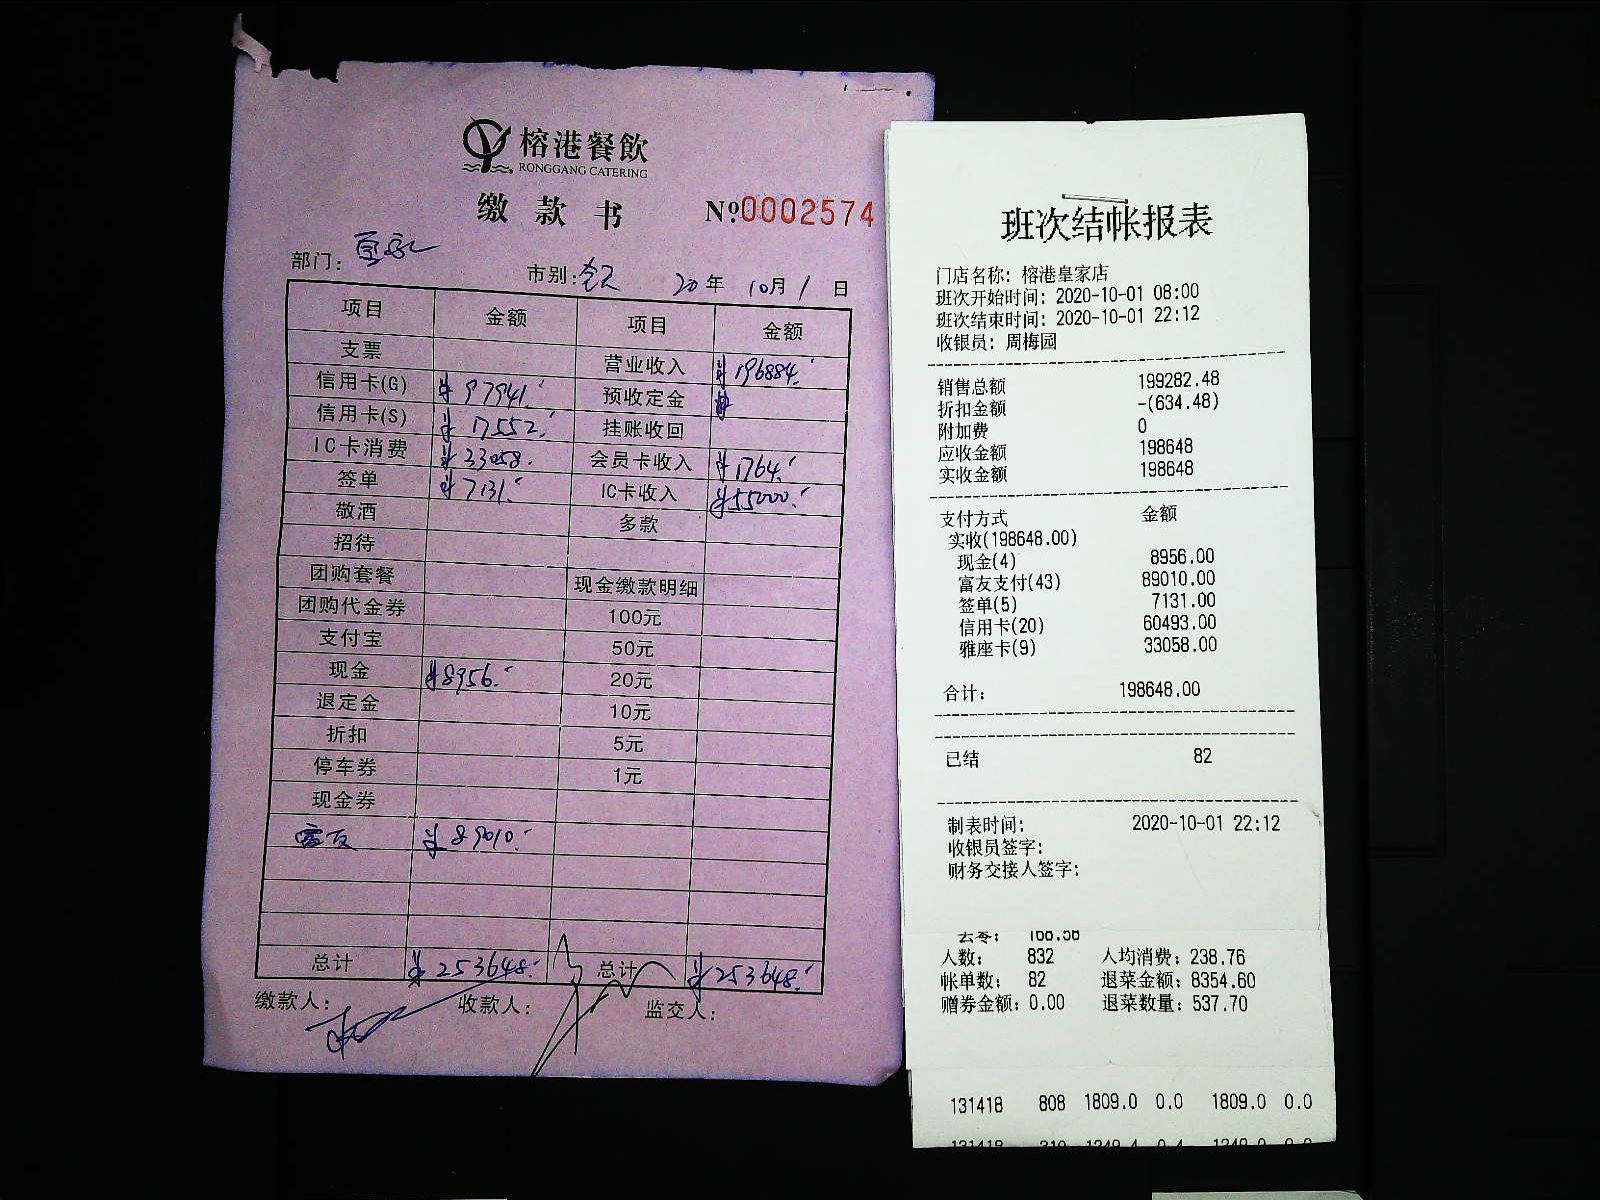 榕港餐飲
RONGGANG CATERING
缴款书 №0002574
部门: 皇家 市别: 全天 20年 10月 1日
项目 金额 项目 金额
支票 营业收入 ¥196884.
信用卡(G) ¥97941. 预收定金
信用卡(S) ¥17552. 挂账收回
IC卡消费 ¥33058. 会员卡收入 ¥1764.
签单 ¥7131. IC卡收入 ¥55000.
敬酒 多款
招待
团购套餐 现金缴款明细
团购代金券 100元
支付宝 50元
现金 ¥8956. 20元
退定金 10元
折扣 5元
停车券 1元
现金券
富友 ¥89010.
总计 ¥253648. 总计 ¥253648.
缴款人: 收款人: 监交人:
班次结帐报表
门店名称: 榕港皇家店
班次开始时间: 2020-10-01 08:00
班次结束时间: 2020-10-01 22:12
收银员: 周梅园
销售总额 199282.48
折扣金额 -(634.48)
附加费 0
应收金额 198648
实收金额 198648
支付方式 金额
实收(198648.00)
现金(4) 8956.00
富友支付(43) 89010.00
签单(5) 7131.00
信用卡(20) 60493.00
雅座卡(9) 33058.00
合计: 198648.00
已结 82
制表时间: 2020-10-01 22:12
收银员签字:
财务交接人签字:
去零: 168.58
人数: 832 人均消费: 238.76
帐单数: 82 退菜金额: 8354.60
赠券金额: 0.00 退菜数量: 537.70
131418 808 1809.0 0.0 1809.0 0.0